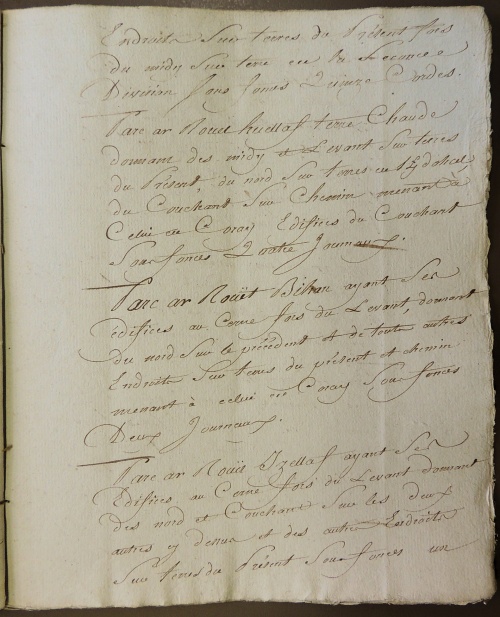 Endroits Sur terres du Présent fors
du midy Sur terre en la Seconde
Division Sous fonds Quinze Cordes.
Parc ar Rouet huellaf terre Chaude
donnant des midy et Levant Sur terres
du Présent, du nord Sur terres
du Couchant Sur Chemin menant à
Celui de Coray Edifices du Couchant
Sous fonces Quatre Journaux.
Parc ar Rouët Bihan ayant Ses
édifices au Cerne fors du Levant, donnant
du nord Sur le précédent et de toute autres
Endroits Sur terres du présent et chemin
menant à celui de Coray Sous fonces
Deux Journaux.
Parc ar Rouët Izellaf ayant Ses
Edifices au Cerne fors du Levant donnant
des nord et Couchant Sur les deux
autres y denus et des autre Endroits
Sur terres du Présent Sous fonces un